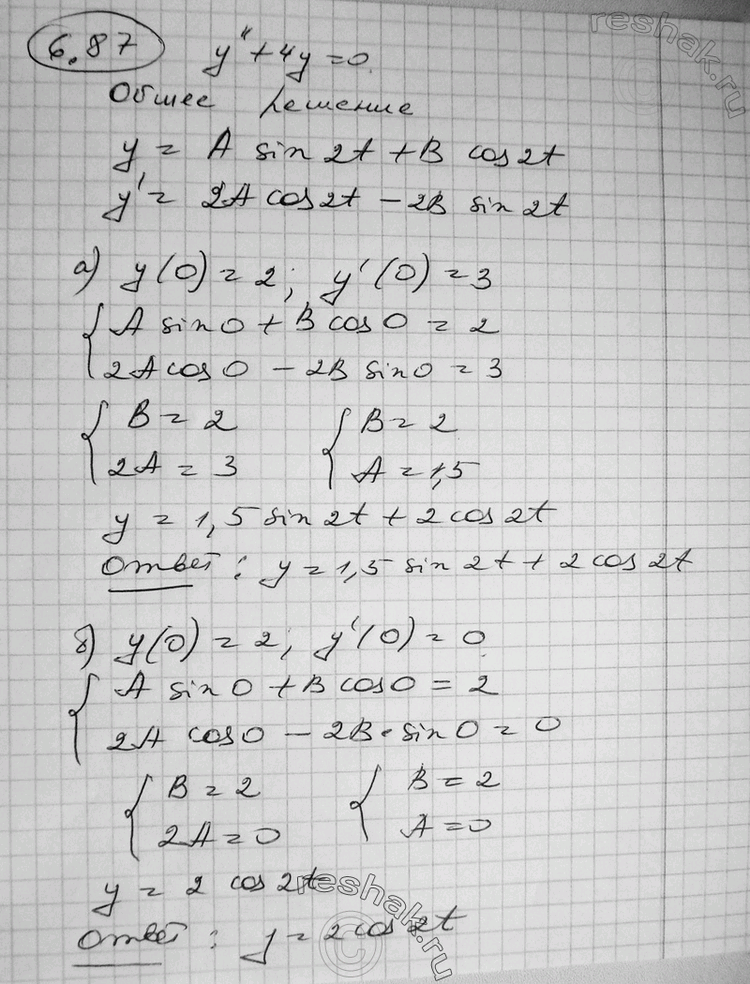 6.87 y'' + 4y = 0.
reshak.ru
Общее решение
y = A sin 2t + B cos 2t
y' = 2A cos 2t - 2B sin 2t
а) y(0) = 2; y'(0) = 3
{ A sin 0 + B cos 0 = 2
2A cos 0 - 2B sin 0 = 3
{ B = 2 { B = 2
2A = 3 A = 1,5
y = 1,5 sin 2t + 2 cos 2t
Ответ: y = 1,5 sin 2t + 2 cos 2t
б) y(0) = 2; y'(0) = 0
{ A sin 0 + B cos 0 = 2
2A cos 0 - 2B · sin 0 = 0
{ B = 2 { B = 2
2A = 0 A = 0
y = 2 cos 2t
Ответ: y = 2 cos 2t
reshak.ru
©